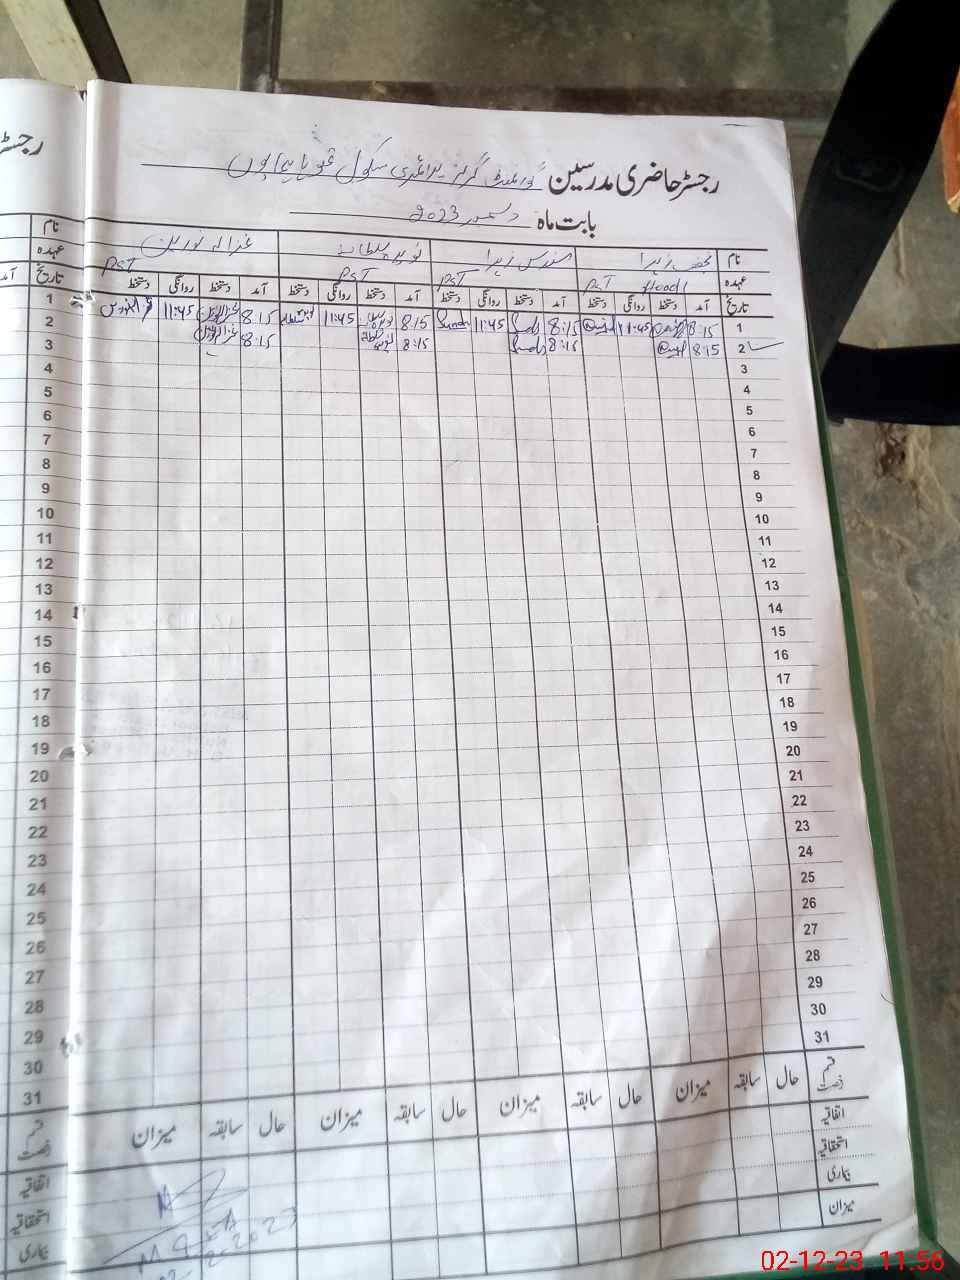 رجسٹر حاضری مدرسین گورنمنٹ گرلز پرائمری سکول
بابت ماہ دسمبر 2023
نام زہرا سندس زہرا نویدہ سلطانہ غزالہ نورین
عہدہ PST Head PST PST PST
تاریخ آمد دستخط روانگی دستخط آمد دستخط روانگی دستخط آمد دستخط روانگی دستخط آمد دستخط روانگی دستخط
1 8:15 11:45 8:15 11:45 8:15 11:45 8:15 11:45
2 8:15 8:15 8:15 8:15
3
4
5
6
7
8
9
10
11
12
13
14
15
16
17
18
19
20
21
22
23
24
25
26
27
28
29
30
31
قسم رخصت حال سابقہ میزان حال سابقہ میزان حال سابقہ میزان حال سابقہ میزان
اتفاقیہ
استحقاقیہ
بیماری
میزان
رجسٹر
نام
عہدہ
تاریخ آمد
1
2
3
4
5
6
7
8
9
10
11
12
13
14
15
16
17
18
19
20
21
22
23
24
25
26
27
28
29
30
31
قسم رخصت
اتفاقیہ
استحقاقیہ
بیماری
MEA
02-12-23 11:56